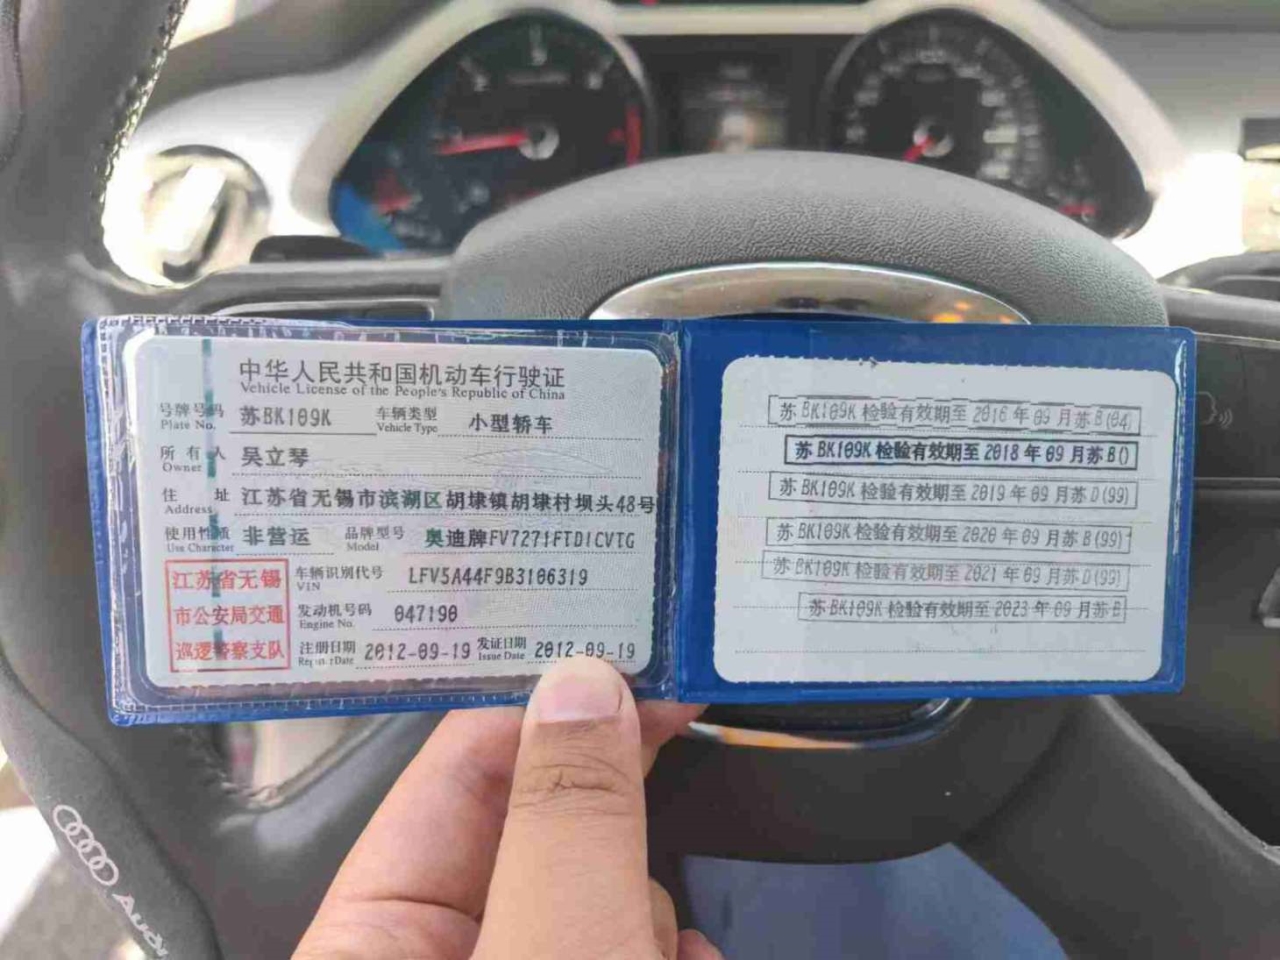 中华人民共和国机动车行驶证
Vehicle License of the People's Republic of China
号牌号码 苏BK109K 车辆类型 小型轿车
Plate No. Vehicle Type
所有人 吴立琴
Owner
住址 江苏省无锡市滨湖区胡埭镇胡埭村坝头48号
Address
使用性质 非营运 品牌型号 奥迪牌FV7271FTDICVTG
Use Character Model
江苏省无锡
市公安局交通
巡逻警察支队
车辆识别代号 LFV5A44F9B3106319
VIN
发动机号码 047190
Engine No.
注册日期 2012-09-19 发证日期 2012-09-19
Register Date Issue Date
苏BK109K 检验有效期至 2016 年 09 月苏B(04)
苏BK109K 检验有效期至 2018 年 09 月苏B()
苏BK109K 检验有效期至 2019 年 09 月苏D(99)
苏BK109K 检验有效期至 2020 年 09 月苏B(99)
苏BK109K 检验有效期至 2021 年 09 月苏D(99)
苏BK109K 检验有效期至 2023 年 09 月苏B
Audi